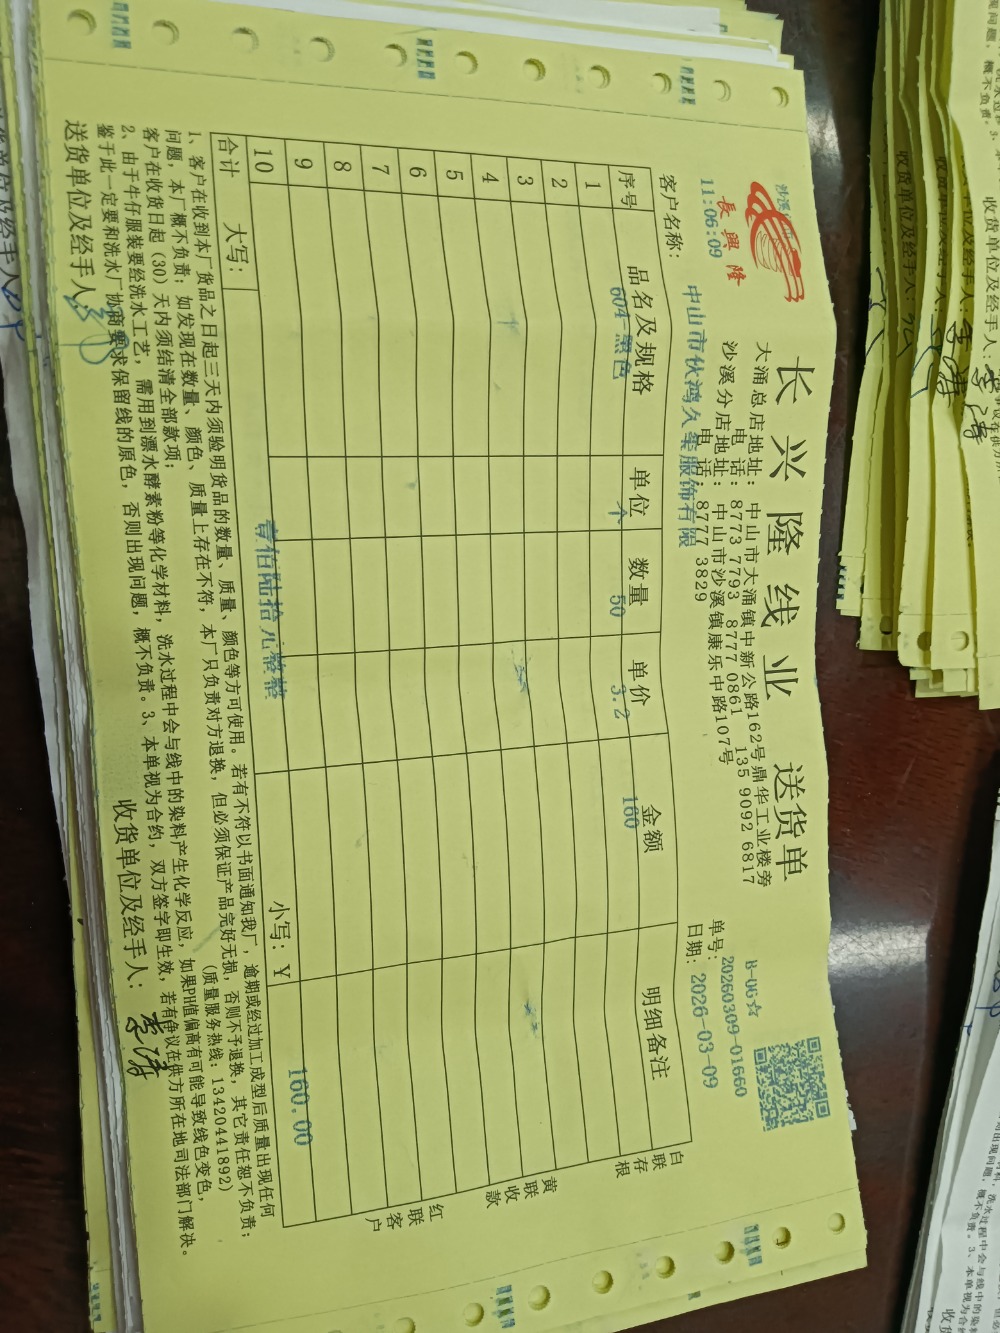 長興隆
长兴隆线业 送货单
大涌总店地址：中山市大涌镇中新公路162号鼎华工业楼旁
电 话：8773 7793 8777 0861 135 9092 6817
沙溪分店地址：中山市沙溪镇康乐中路107号
电 话：8777 3829
B-0G☆
单号：20260309-01660
日期：2026-03-09
11:06:09
客户名称：中山市伙鸿久隼服饰有限
序号 品名及规格 单位 数量 单价 金额 明细备注
1 604-黑色 个 50 3.2 160
2
3
4
5
6
7
8
9
10
合计 大写：壹佰陆拾元整整 小写：Y 160.00
白联存根
黄联收款
红联客户
1、客户在收到本厂货品之日起三天内须验明货品的数量、质量、颜色等方可使用。若有不符以书面通知我厂，逾期或经过加工成型后质量出现任何
问题，本厂概不负责；如发现在数量、颜色、质量上存在不符，本厂只负责对方退换，但必须保证产品完好无损，否则不予退换，其它责任恕不负责；
客户在收货日起（30）天内须结清全部款项； (质量服务热线：13420441892)
2、由于牛仔服装要经洗水工艺，需用到漂水酵素粉等化学材料，洗水过程中会与线中的染料产生化学反应，如果PH值偏高有可能导致线色变色，
鉴于此一定要和洗水厂协商要求保留线的原色，否则出现问题，概不负责。3、本单视为合约，双方签字即生效，若有争议在供方所在地司法部门解决。
送货单位及经手人： 收货单位及经手人：李涛